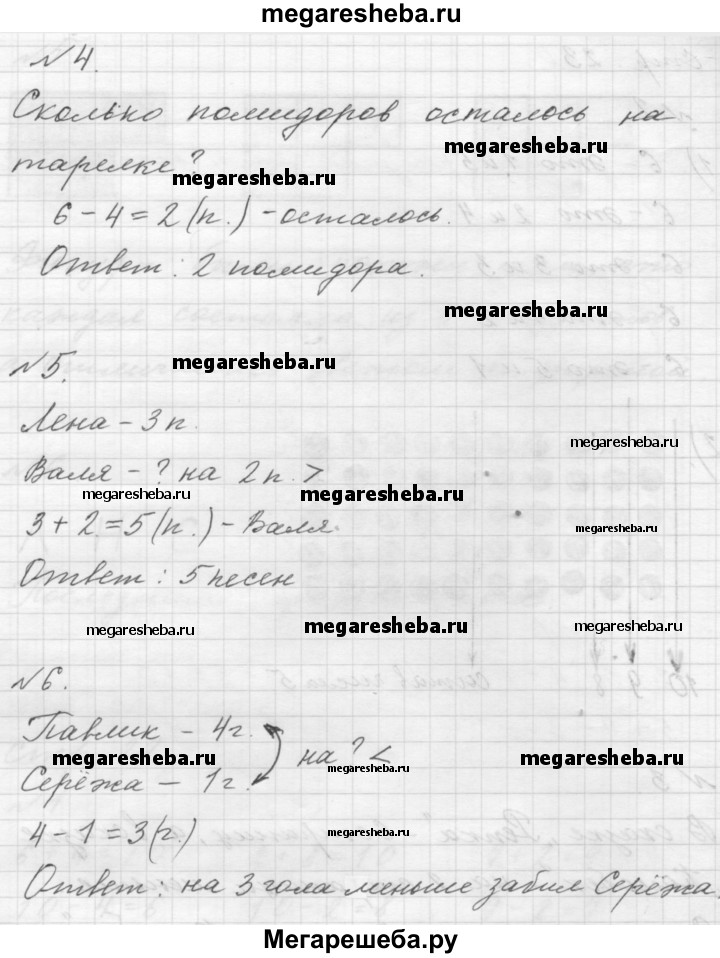 megaresheba.ru
№4.
Сколько помидоров осталось на
megaresheba.ru
тарелке?
megaresheba.ru
6 - 4 = 2 (п.) - осталось.
Ответ: 2 помидора.
megaresheba.ru
megaresheba.ru
№5.
Лена - 3 п.
megaresheba.ru
Валя - ? на 2 п. >
megaresheba.ru megaresheba.ru
3 + 2 = 5 (п.) - Валя.
megaresheba.ru
Ответ: 5 песен
megaresheba.ru megaresheba.ru megaresheba.ru
№6.
Павлик - 4 г.
на ? <
megaresheba.ru megaresheba.ru megaresheba.ru
Серёжа - 1 г.
4 - 1 = 3 (г.)
megaresheba.ru
Ответ: на 3 гола меньше забил Серёжа.
Мегарешеба.ру